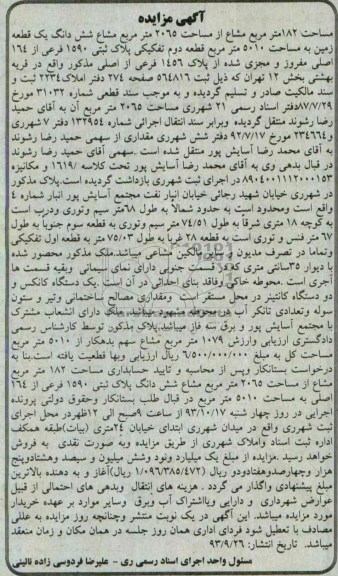 آگهی مزایده
مساحت ۱۸۲متر مربع مشاع از مساحت ۲۰۶۵ متر مربع مشاع شش دانگ یک قطعه
زمین به مساحت ۵۰۱۰ متر مربع قطعه دوم تفکیکی پلاک ثبتی ۱۵۹۰ فرعی از ۱۶۴
اصلی مفروز و مجزی شده از پلاک ۱۴۵۶ فرعی از اصلی مذکور واقع در قریه
بهشتی بخش ۱۲ تهران که ذیل ثبت ۵۶۴۸۱۶ صفحه ۲۷۴ دفتر املاک۲۲۳۴ ثبت و
سند مالکیت صادر و تسلیم گردیده و به موجب سند قطعی شماره ۳۱۰۳۲ مورخ
۸۷/۷/۲۹دفتر اسناد رسمی ۲۱ شهرری مساحت ۲۰۶۵ متر مربع آن به آقای حمید
رضا رشوند منتقل گردیده وبرابر سند انتقال اجرائی شماره ۱۳۲۹۵۴ دفتر ۷ شهرری
و۲۳۴۶۶۴ مورخ ۹۲/۷/۱۷ دفتر شش شهرری مقداری از سهمی حمید رضا رشوند
به آقای محمد رضا آسایش پور منتقل شده است .سهمی آقای حمید رضا رشوند
در قبال بدهی وی به آقای محمد رضا آسایش پور تحت کلاسه /۱۶۱۹ و مکانیزه
۸۹۰۴۰۰۱۱۱۲۰۰۰۱۵۳ در اجرای ثبت شهرری بازداشت گردیده است.پلاک مذکور
در شهرری خیابان شهید رجائی خیابان انبار نفت مجتمع آسایش پور انبار شماره ۴
واقع است ومحدود است به حدود شمالا به طول ۶۸متر سیم وتوری ودرب است
به کوچه ۱۸ متری شرقا به طول ۷۴/۵۱ متر سیم وتوری به قطعه سوم جنوبا به طول
۶۷ متر فنس و توری است به قطعه ۲۸ غربا به طول ۷۵/۰۳ متر به قطعه اول تفکیکی
وتماما در تصرف مدیون و سایر مالکین مشاعی میباشد.ملک مذکور محصور شده
با دیوار ۳۵سانتی متری که در قسمت جنوبی دارای نمای سیمانی وبقیه قسمت ها
آجری است .محوطه خاکی وفاقد بنای احداثی در آن است .یک دستگاه کانکس و
دو دستگاه کانتینر در محل مستقر است ومقداری مصالح ساختمانی وتیر و ستون
سوله وتعدادی تانکر آب در محوطه مشهود میباشد. ملک دارای انشعاب مشترک
با مجتمع آسایش پور و برق سه فاز میباشد.پلاک مذکون توسط کارشناس رسمی
دادگستری ارزیابی وارزش ۱۰۷۹ متر مربع مشاع سهم بدهکار از ۵۰۱۰ متر مربع
مساحت کل به مبلغ ۶/۵۰۰/۰۰۰/۰۰۰ ریال ارزیابی وبها قطعیت یافته است.بنا به
درخواست بستانکار وپس از محاسبه و تایید حسابداری مساحت ۱۸۲ متر مربع
مشاع از مساحت ۲۰۶۵ متر مربع مشاع شش دانگ پلاک ثبتی ۱۵۹۰ فرعی از ۱۶۴
اصلی به مساحت ۵۰۱۰ متر مربع در قبال طلب بستانکار وحقوق دولتی پرونده
اجرایی در روز چهار شنبه ۹۳/۱۰/۱۷ از ساعت ۹صبح الی ۱۲ظهردر محل اجرای
ثبت شهرری واقع در میدان شهرری ابتدای خیابان ۲۴متری (بیات)طبقه همکف
اداره ثبت اسناد واملاک شهرری از طریق مزایده وبه صورت نقدی به فروش
خواهد رسید .مزایده از مبلغ یک میلیارد ونود وشش میلیون و سیصد وهشتادوپنج
هزار وچهارصدوهفتادودو ریال (۱/۰۹۶/۳۸۵/۴۷۲ ریال)آغاز و به دهنده بالاترین
مبلغ پیشنهادی واگذار می گردد . هزینه های انتقال وبدهی های احتمالی از قبیل
عوارض شهرداری و دارایی ویااشتراک آب وبرق وسایر موارد بر عهده خریدار
مورد مزایده میباشد. این آگهی در یک نوبت منتشر وچنانچه روز مزایده به عللی
مصادف با تعطیل شود فردای اداری همان روز جلسه در همان مکان و زمان منعقد
میباشد. تاریخ انتشار: ۹۳/۹/۲۶
مسئول واحد اجرای اسناد رسمی ری - علیرضا فردوسی زاده نائینی